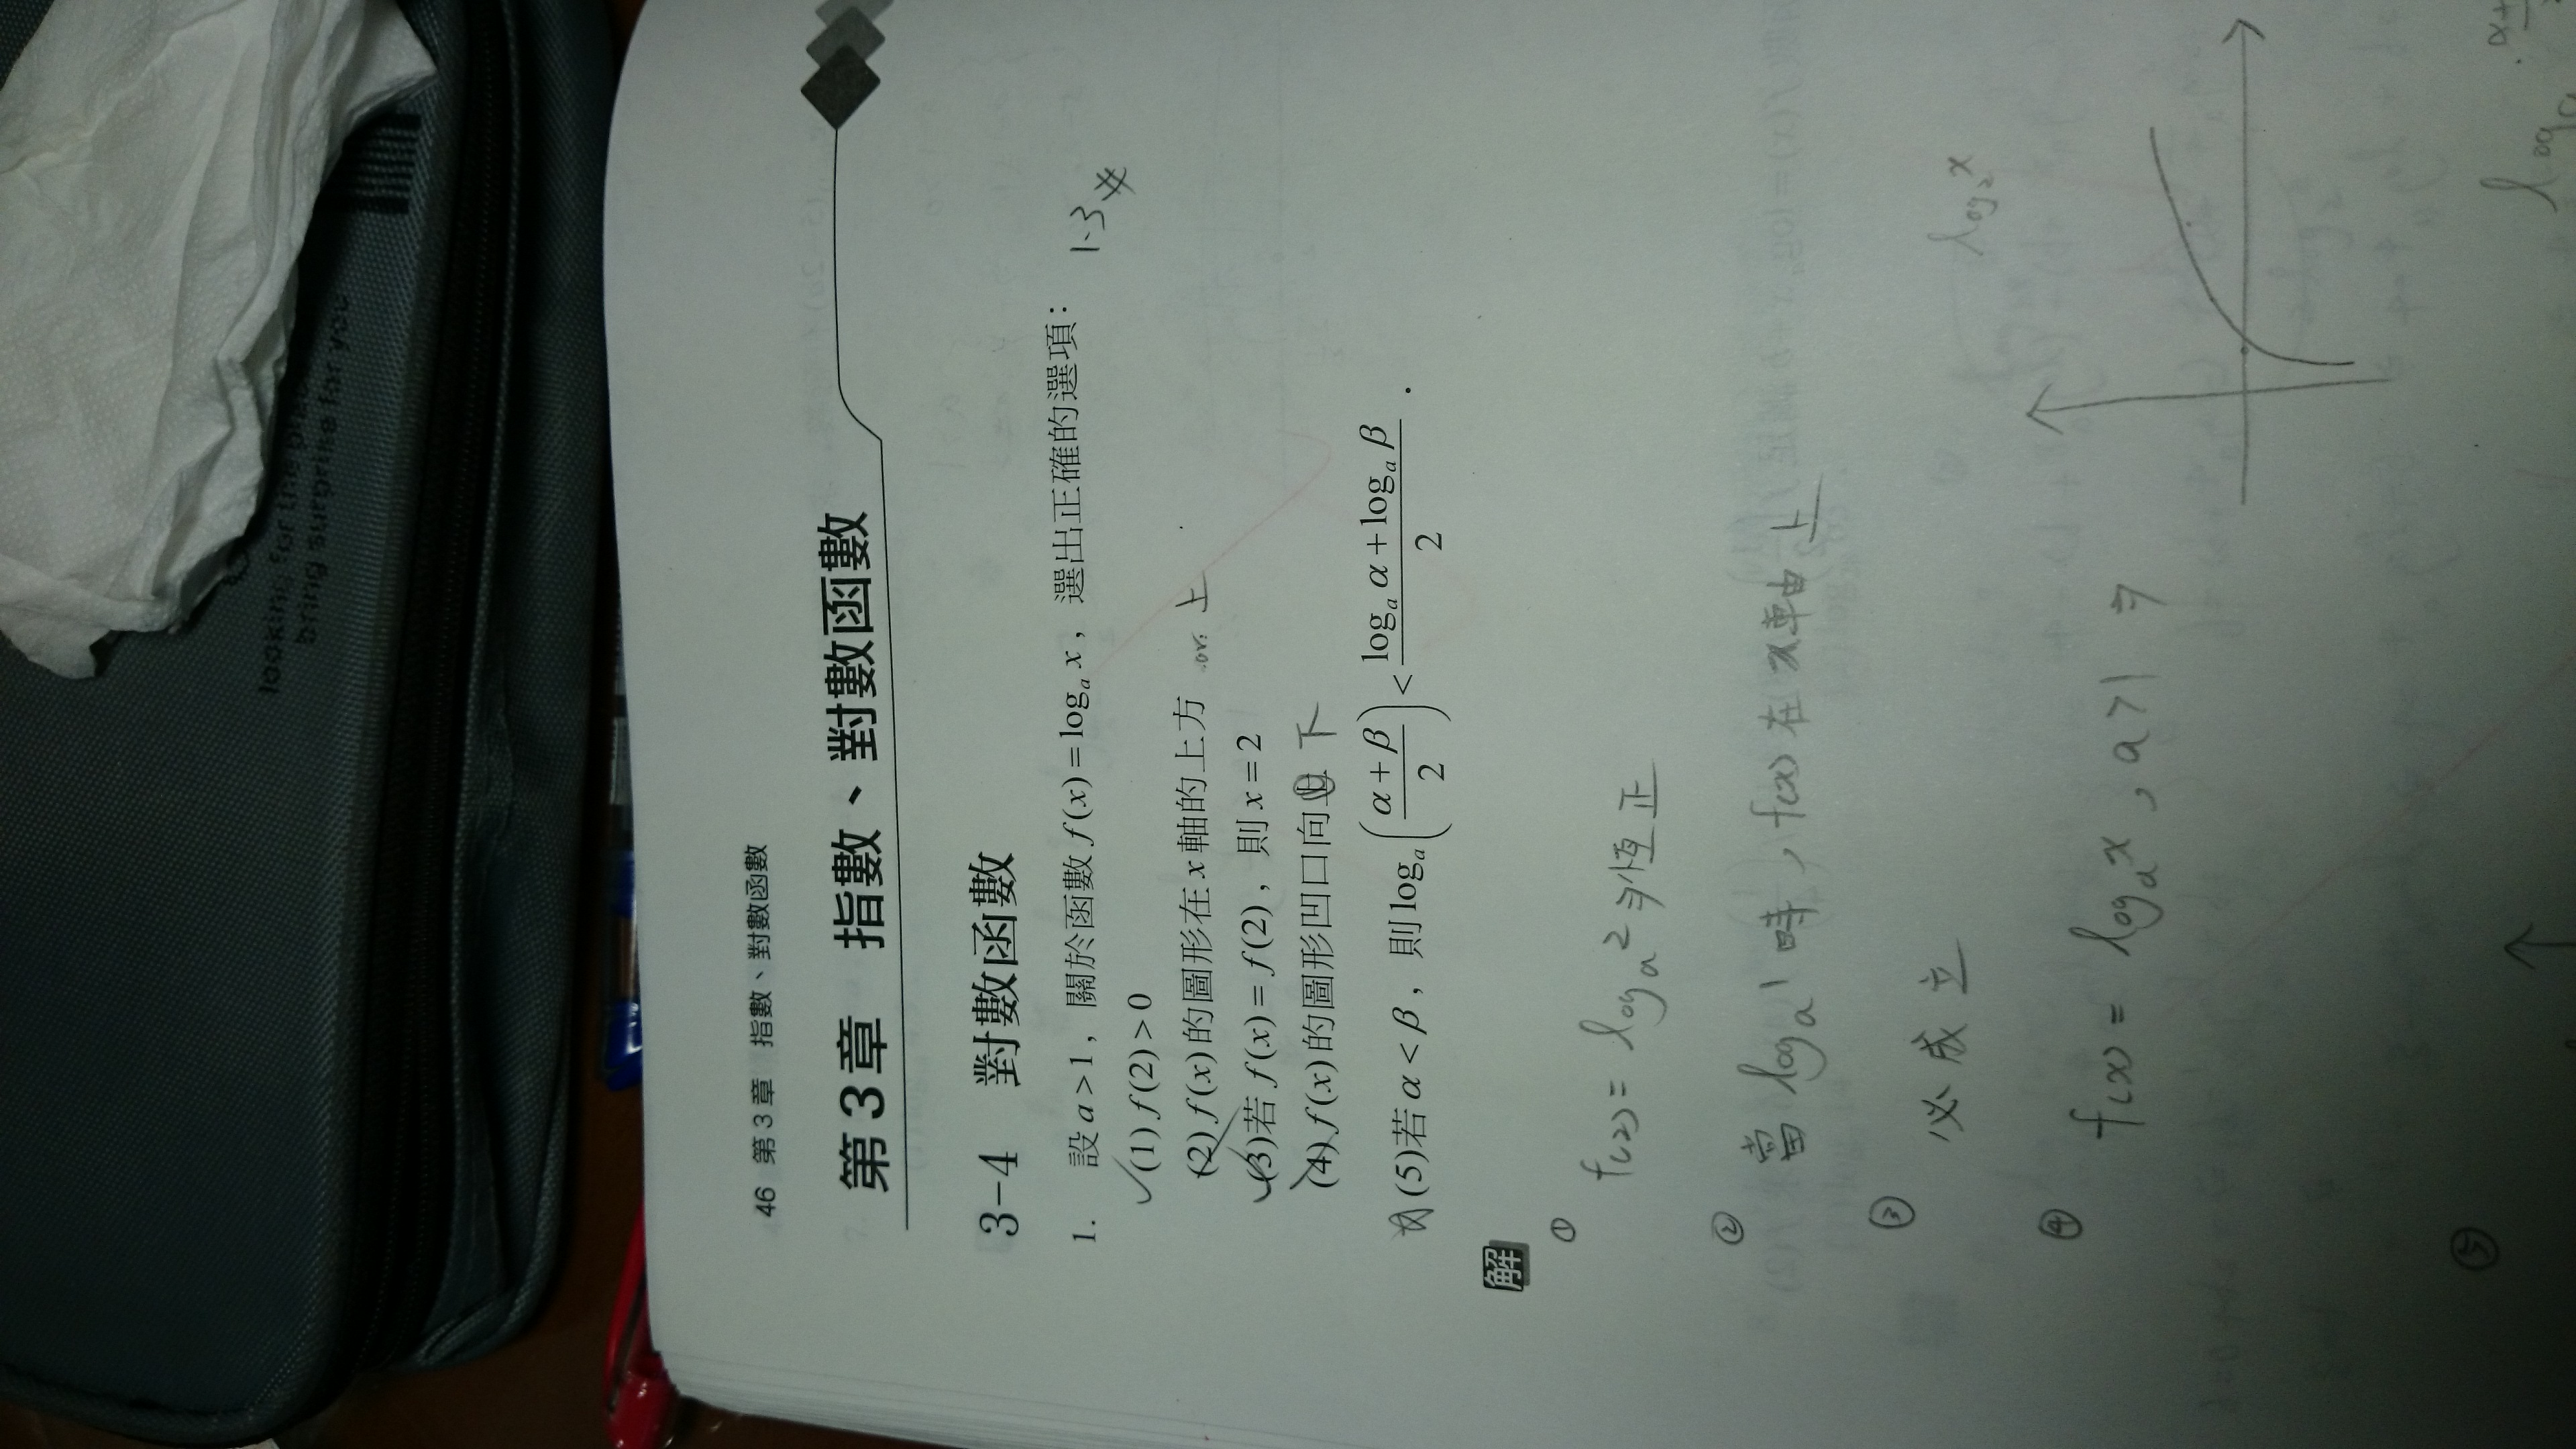 looking for the
bring surprise for you
46 第3章 指數、對數函數
第3章 指數、對數函數
3-4 對數函數
1. 設 a > 1,關於函數 f(x) = logₐ x,選出正確的選項: 1.3
✓(1) f(2) > 0
(2) f(x) 的圖形在 x 軸的上方 or 上
✓(3)若 f(x) = f(2),則 x = 2
(4) f(x) 的圖形凹口向 下
(5)若 α < β,則 logₐ((α+β)/2) < (logₐ α + logₐ β)/2 .
解
① f(2) = logₐ 2 恆正
② 當 logₐ 1 時, f(x) 在 x軸 上
③ 必成立
④ f(x) = logₐ x , a > 1
log₂ x
⑤
α+
log